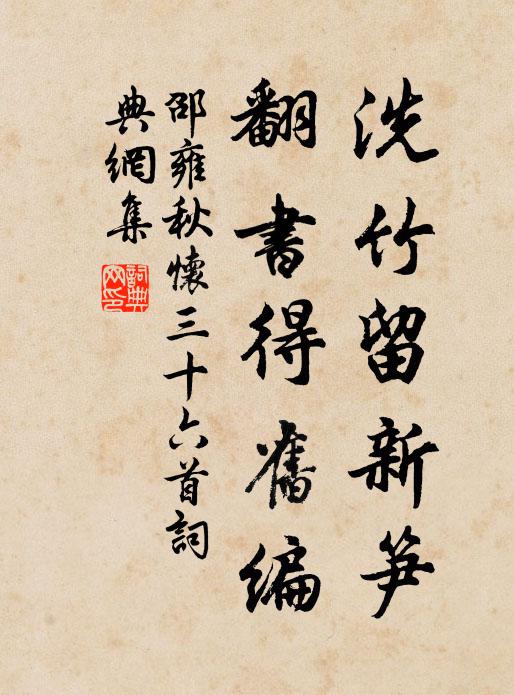 洗竹留新笋
翻書得舊編
邵雍秋懷三十六首詞
典網集
詞典
网印